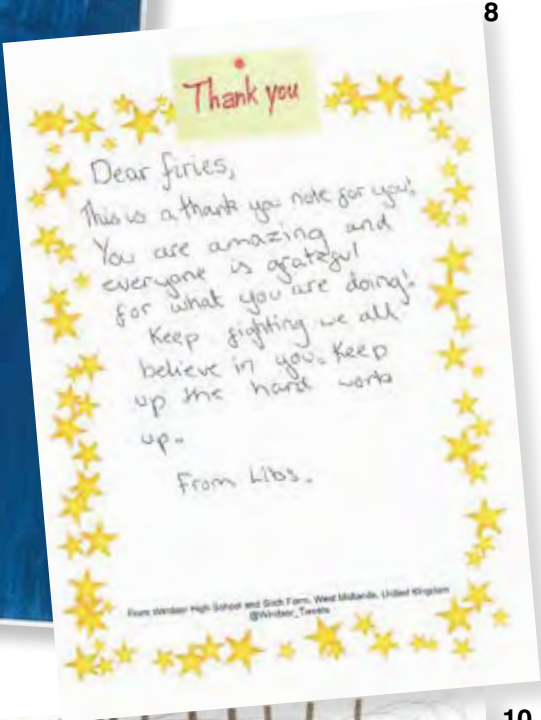 8
Thank you
Dear firies,
This is a thank you note for you!
You are amazing and
everyone is grateful
for what you are doing!
Keep fighting we all
believe in you. Keep
up the hard work
up.
From Libs.
From Windsor High School and Sixth Form, West Midlands, United Kingdom
@Windsor_Tweets
10